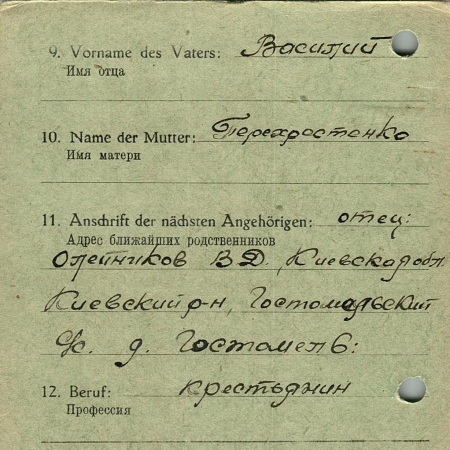 9. Vorname des Vaters: Василий
Имя отца
10. Name der Mutter: Перехростенко
Имя матери
11. Anschrift der nächsten Angehörigen: отец:
Адрес ближайших родственников
Олейников В Д, Киевская обл.
Киевский р-н, Гостомельский
с/с. д. Гостомель:
12. Beruf: крестьянин
Профессия